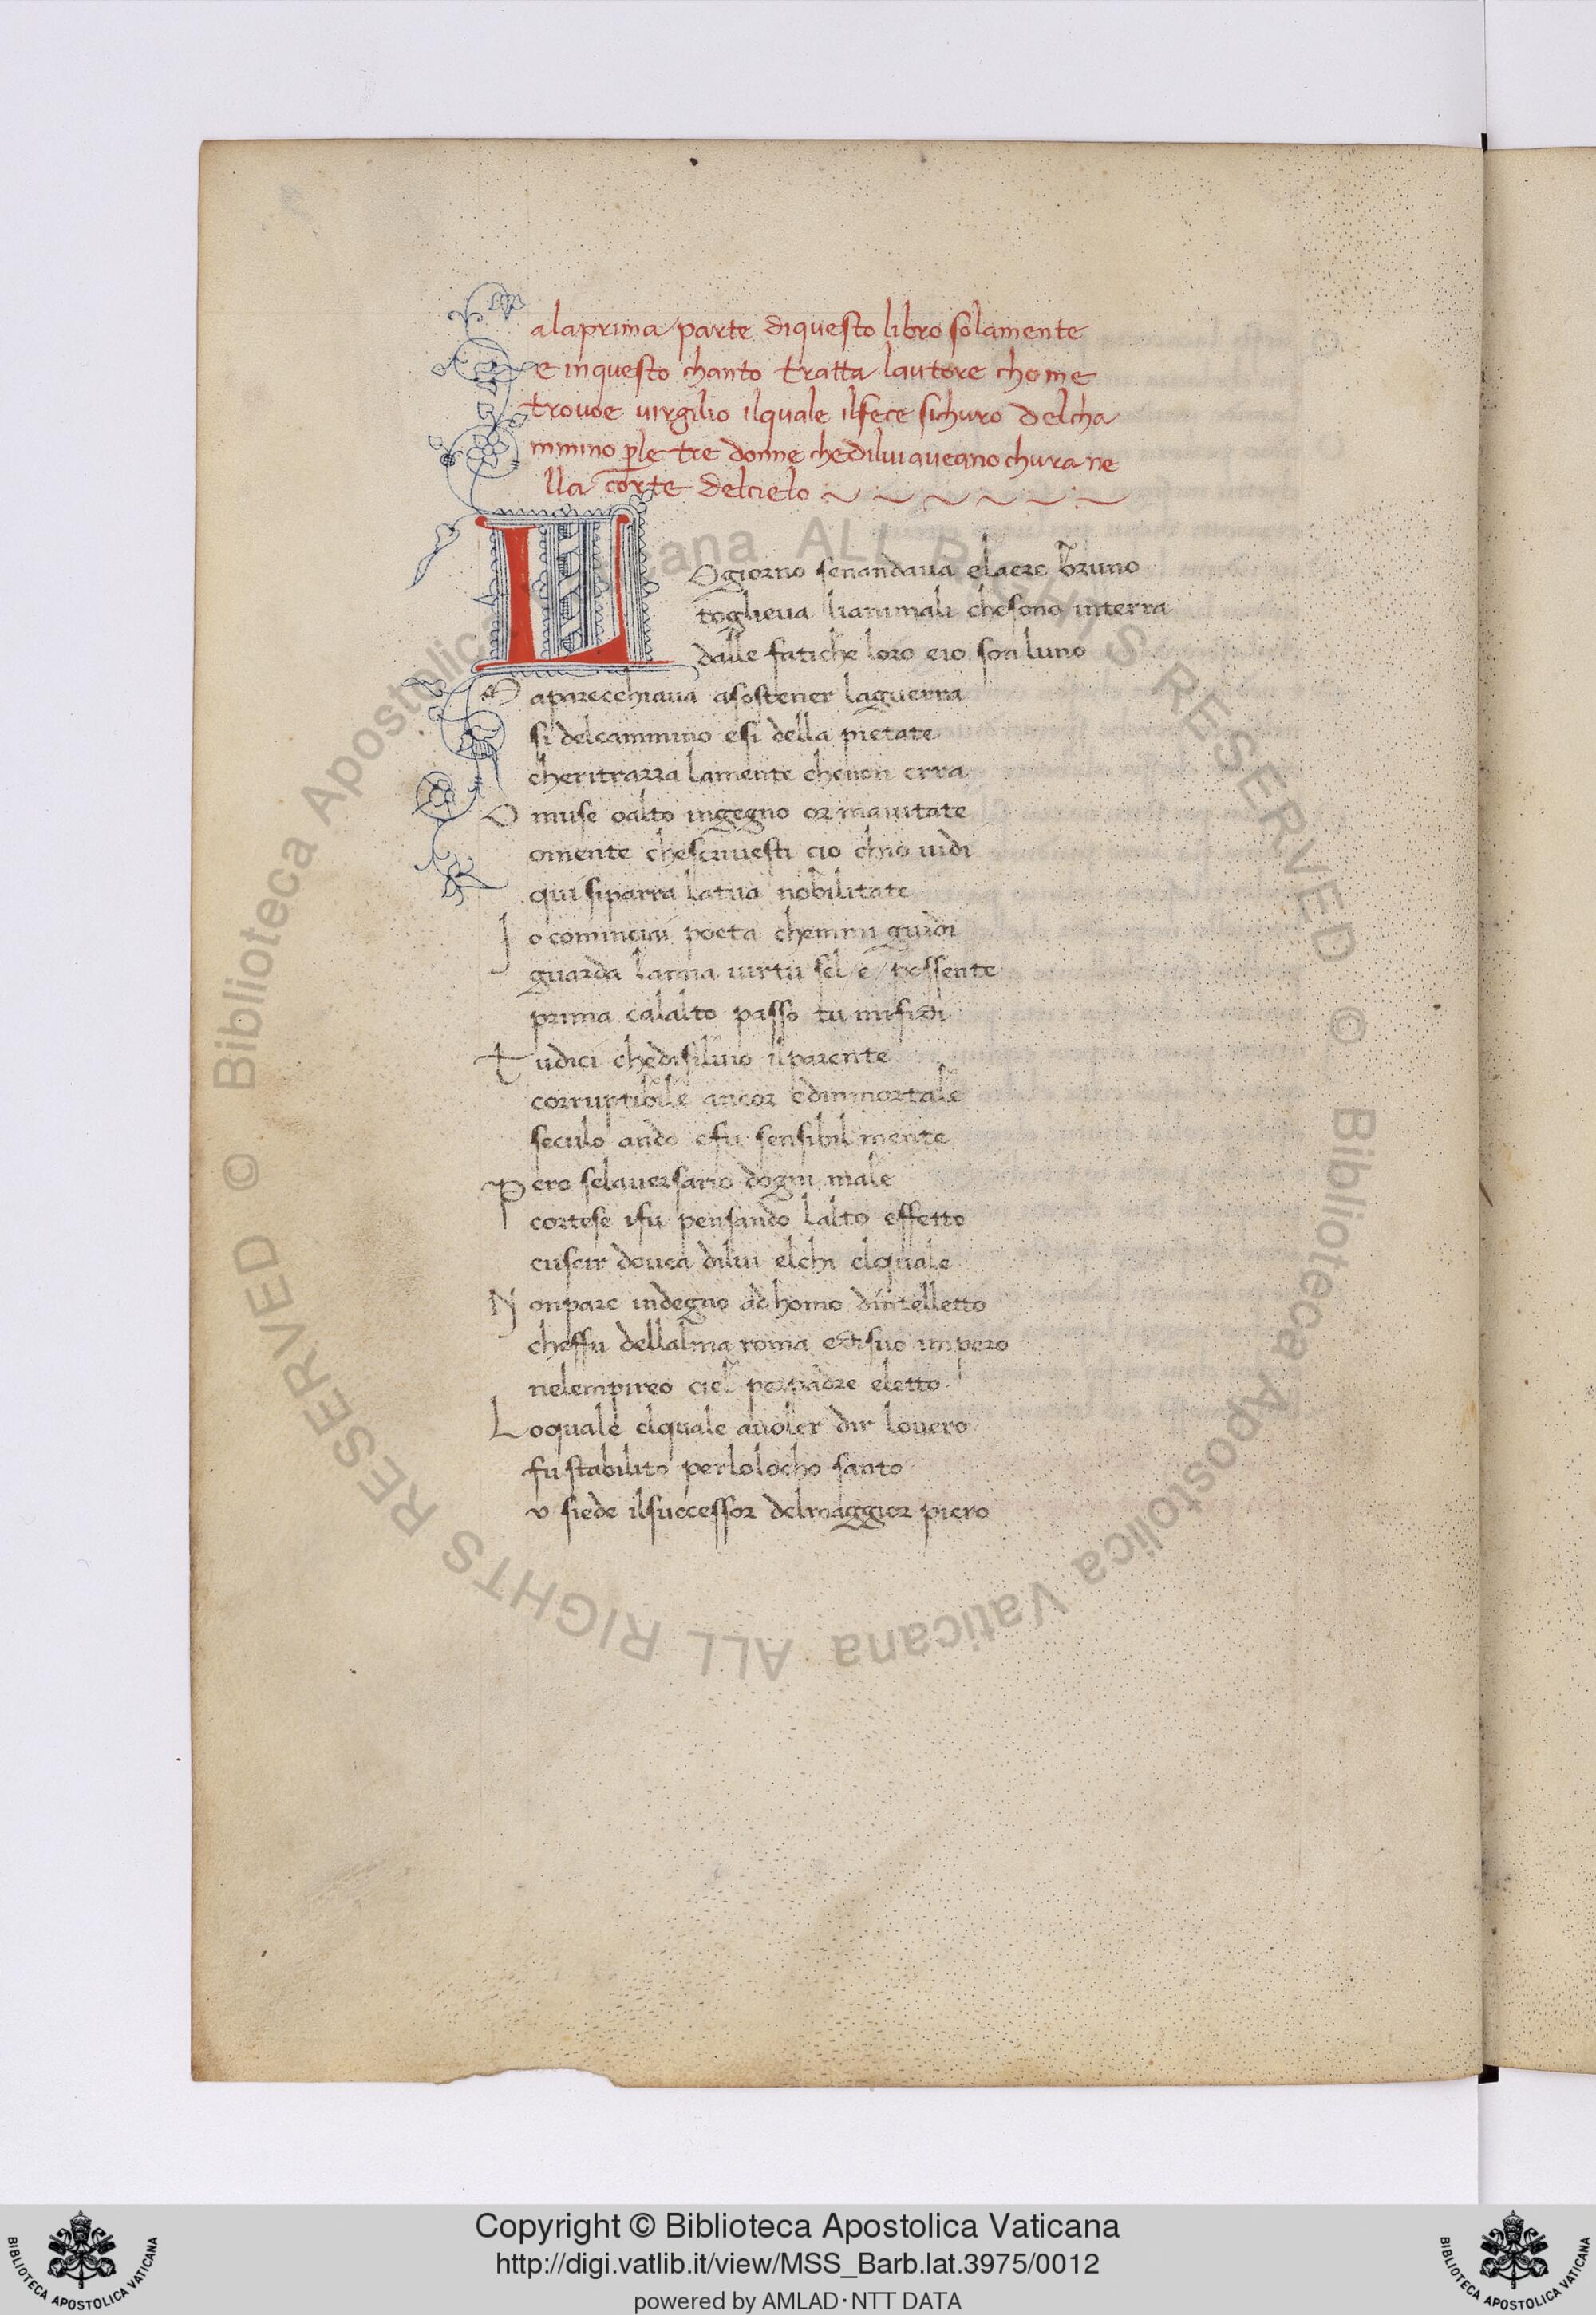 a la prima parte di questo libro solamente
e in questo chanto tratta lautore chome
trovoe virgilio ilquale ilfece sichuro delcha
mmino ple tre donne chedilui aveano chura ne
lla corte delcielo
L Ogiorno senandava elaere bruno
toglieva lianimali chesono interra
dalle fatiche loro eio son luno
M aparecchiava asostener laguerra
si delcammino esi della pietate
cheritrarra lamente chenon erra
O muse oalto ingegno or maiutate
omente chescrivesti cio chio vidi
qui siparra latua nobilitate
J o cominciai poeta chemmi guidi
guarda lamia virtu sel/e/possente
prima calalto passo tu mifidi
T udici chedisilvio ilparente
corruptibile ancor edimmortale
seculo ando efu sensibil mente
P ero selaversario dogni male
cortese ifu pensando lalto effetto
cuscir dovea dilui elchi elquale
N onpare indegno ad homo dintelletto
cheffu dellalma roma edisuo impero
nelempireo ciel perpadre eletto
L oquale elquale avoler dir lovero
fu stabilito perlolocho santo
v siede ilsuccessor delmaggior piero
© Biblioteca Apostolica Vaticana ALL RIGHTS RESERVED
© Biblioteca Apostolica Vaticana ALL RIGHTS RESERVED
Copyright © Biblioteca Apostolica Vaticana
http://digi.vatlib.it/view/MSS_Barb.lat.3975/0012
powered by AMLAD·NTT DATA
BIBLIOTECA APOSTOLICA VATICANA
BIBLIOTECA APOSTOLICA VATICANA